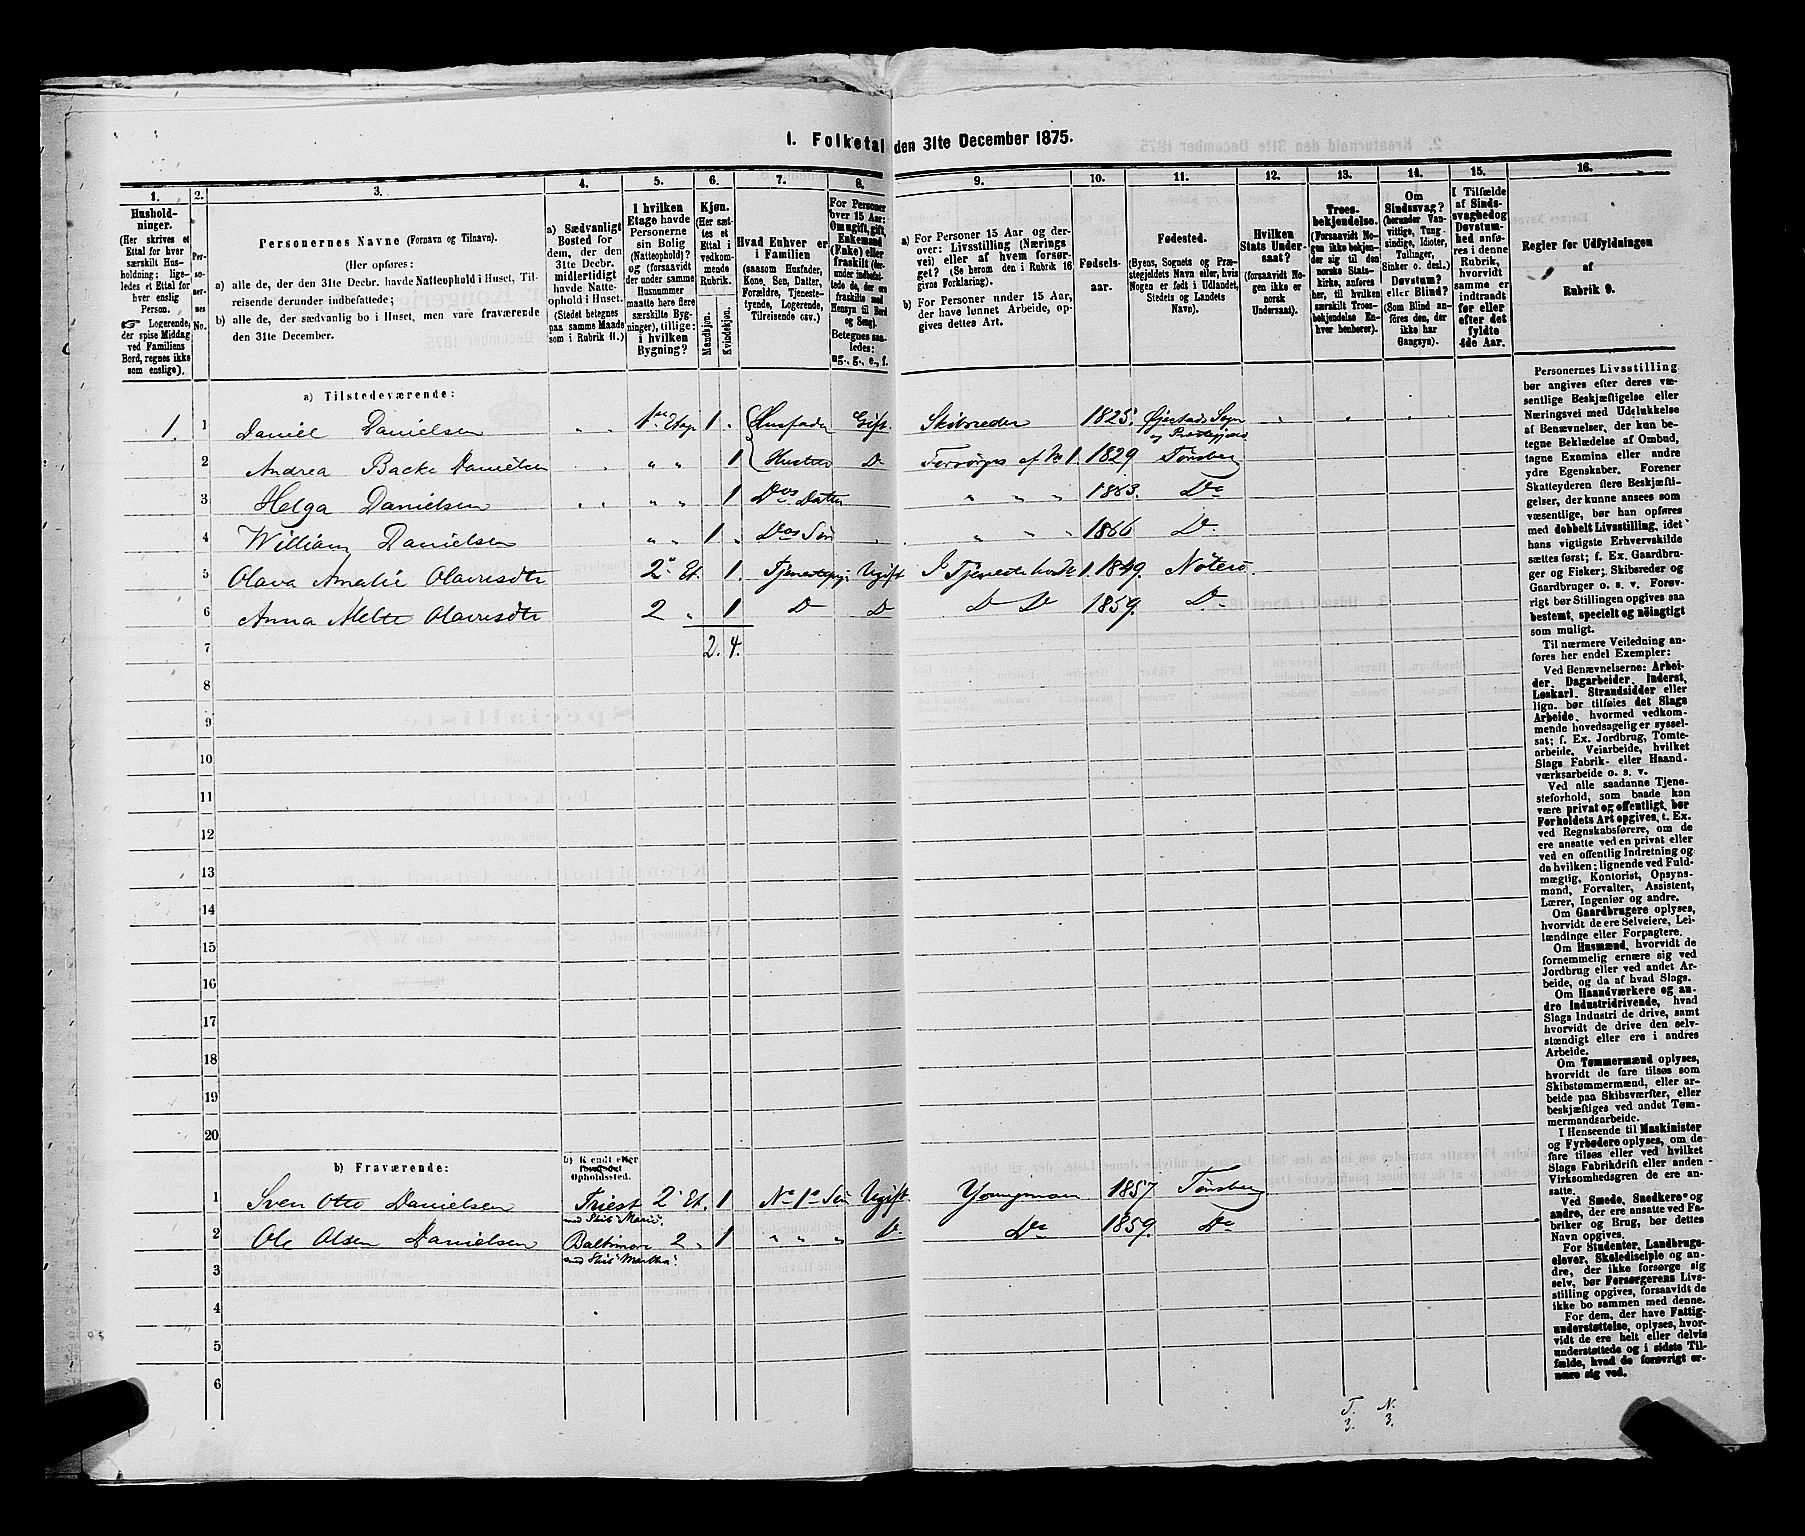 I. Folketal den 31te December 1875.
1. 2. 3. 4. 5. 6. 7. 8. 9. 10. 11. 12. 13. 14. 15. 16.
Husholdninger.
(Her skrives et Ettal for hver særskilt Husholdning; ligeledes et Ettal for hver enslig Person.
☞ Logerende, der spise Middag ved Familiens Bord, regnes ikke som enslige).
Personernes No.
Personernes Navne (Fornavn og Tilnavn).
(Her opføres:
a) alle de, der den 31te Decbr. havde Natteophold i Huset, Tilreisende derunder indbefattede;
b) alle de, der sædvanlig bo i Huset, men vare fraværende den 31te December.
a) Sædvanligt Bosted for dem, der den 31te Decbr. midlertidigt havde Natteophold i Huset. (Stedet betegnes paa samme Maade som i Rubrik 11.)
I hvilken Etage havde Personerne sin Bolig (Natteophold)? og (forsaavidt der under samme Husnummer maatte høre flere særskilte Bygninger), tillige: i hvilken Bygning?
Kjøn.
(Her sættes et Ettal i vedkommende Rubrik.
Mandkjøn. Kvindekjøn.
Hvad Enhver er i Familien
(saasom Husfader, Kone, Søn, Datter, Forældre, Tjenestetyende, Logerende, Tilreisende osv.)
For Personer over 15 Aar: Om ugift, gift, Enkemand (Enke) eller fraskilt (derunder indbefattede de, der ere fraskilte med Hensyn til Bord og Seng). Betegnes saaledes: ug., g., e., f.
a) For Personer 15 Aar og derover: Livsstilling (Næringsvei) eller af hvem forsørget? (Se herom den i Rubrik 16 givne Forklaring).
b) For Personer under 15 Aar, der have lønnet Arbeide, opgives dettes Art.
Fødselsaar.
Fødested.
(Byens, Sognets og Præstegjeldets Navn eller, hvis Nogen er født i Udlandet, Stedets og Landets Navn).
Hvilken Stats Undersaat?
(forsaavidt Nogen ikke er norsk Undersaat).
Troesbekjendelse.
(Forsaavidt Nogen ikke bekjender sig til den norske Statskirke, anføres her, til hvilken særskilt Troesbekjendelse Enhver henhører).
Om Sindssvag? (herunder Vanvittige, Tungsindige, Idioter, Tullinger, Sinker o. desl.) Døvstum? eller Blind? (Som Blind anføres den, der ikke har Gangsyn).
I Tilfælde af Sindssvaghed og Døvstumhed anføres i denne Rubrik, hvorvidt samme er indtraadt før eller efter det fyldte 4de Aar.
Regler for Udfyldningen af Rubrik 9.
a) Tilstedeværende:
1. 1 Daniel Danielsen 1ste Etage 1. Husfader Gift Skibsreder 1825. Øjestad Sogn
2 Andrea Backe Danielsen „ „ 1 Hustru Do Forsørges af No 1. 1829 Tønsberg
3 Helga Danielsen „ „ 1 Dos Datter „ „ „ 1863. Do
4 William Danielsen „ „ 1 Dos Søn „ „ 1866 Do
5 Olava Amalie Olavesdtr 2n Et. 1. Tjenestepige Ugift I Tjeneste hos No 1. 1849. Nøterø.
6 Anna Mette Olavesdtr 2 „ 1 D D D D 1859. Do
7 2. 4.
8
9
10
11
12
13
14
15
16
17
18
19
20
b) Fraværende:
b) Kendt eller formodet Opholdssted.
1 Sven Otto Danielsen Triest 2n Et. 1 No 1s Søn Ugift Youngman 1857. Tønsberg
med Skib "Marie".
2 Ole Olsen Danielsen Baltimore 2 „ 1 „ „ „ Do Do 1859. Do
med Skib "Martha".
3
4
5
6
Personernes Livsstilling
bør angives efter deres væsentlige
Beskjæftigelse eller
Næringsvei med Udelukkelse
af Benævnelser, der kun betegne
Beklædelse af Ombud,
tagne Examina eller andre
ydre Egenskaber. Forener
Skatteyderen flere Beskjæftigelser,
der kunne ansees som
væsentlige, bør han opføres
med dobbelt Livsstilling, idet
hans vigtigste Erhvervskilde
sættes først; f. Ex. Gaardbruger
og Fisker; Skibsreder og
Gaardbruger o. s. v. Forøvrigt
bør Stillingen opgives saa
bestemt, specielt og nøiagtigt
som muligt.
Til nærmere Veiledning anføres
her endel Exempler:
Ved Benævnelserne: Arbeider,
Dagarbeider, Inderst,
Løskarl, Strandsidder eller
lign. bør tilføies det Slags
Arbeide, hvormed vedkommende
hovedsagelig er sysselsat;
f. Ex. Jordbrug, Tomtearbeide,
Veiarbeide, hvilket
Slags Fabrik- eller Haandværksarbeide
o. s. v.
Ved alle saadanne Tjenesteforhold,
som baade kan
være privat og offentligt, bør
Forholdets Art opgives, t. Ex.
ved Regnskabsførere, om de
ere ansatte ved en privat eller
ved en offentlig Indretning og
da hvilken; lignende ved Fuldmægtig,
Kontorist, Opsynsmand,
Forvalter, Assistent,
Lærer, Ingeniør og andre.
Om Gaardbrugere oplyses,
hvorvidt de ere Selveiere, Leilændinge
eller Forpagtere.
Om Husmænd, hvorvidt de
fornemmelig ernære sig ved
Jordbrug eller ved andet Arbeide,
og da af hvad Slags.
Om Haandværkere og andre
Industridrivende, hvad
Slags Industri de drive, samt
hvorvidt de drive den selvstændigt
eller ere i andres
Arbeide.
Om Tømmermænd oplyses,
hvorvidt de fare tilsøs som
Skibstømmermænd, eller arbeide
paa Skibsværfter, eller
beskjæftiges ved andet Tømmermandsarbeide.
I Henseende til Maskinister
og Fyrbødere oplyses, om de
fare tilsøs eller ved hvilket
Slags Fabrikdrift eller anden
Virksomhedsgren de ere ansatte.
Ved Smede, Snedkere og
andre, der ere ansatte ved Fabriker
og Brug, bør dettes
Navn opgives.
For Studenter, Landbrugselever,
Skoledisciple og andre,
der ikke forsørge sig
selv, bør Forsørgerens Livsstilling
opgives, forsaavidt de
ikke bo sammen med denne.
For dem, der have Fattigunderstøttelse,
oplyses, hvorvidt
de ere helt eller delvis
understøttede og i sidste Tilfælde,
hvad de forøvrigt ernære
sig ved.
T. N.
3. 3.